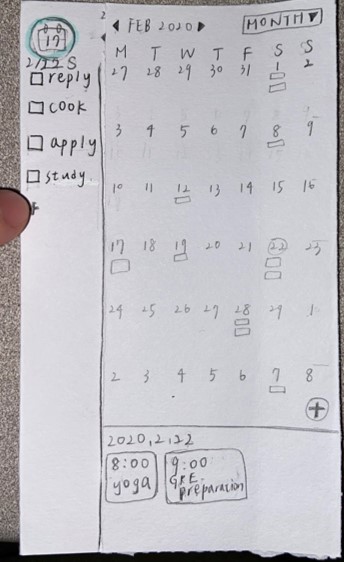 17
2/22 S
reply
cook
apply
study
+
2
◀ FEB 2020 ▶
MONTH ▼
M T W T F S S
27 28 29 30 31 1 2
3 4 5 6 7 8 9
10 11 12 13 14 15 16
17 18 19 20 21 22 23
24 25 26 27 28 29 1
2 3 4 5 6 7 8
+
2020,2,22
8:00
yoga
9:00
GRE
preparation